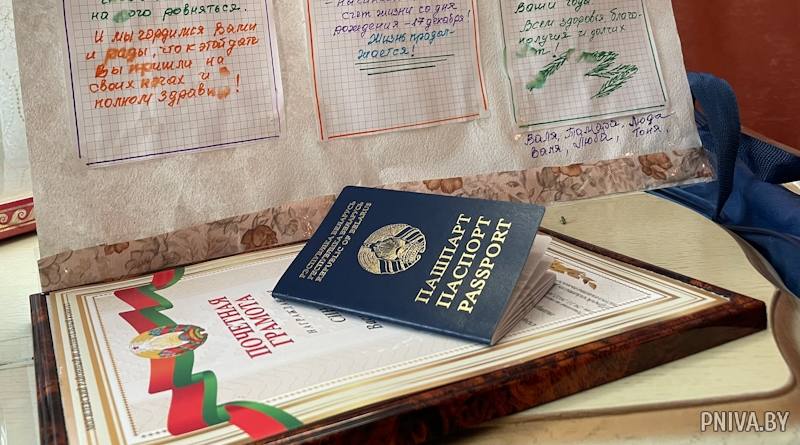 на кого ровняться.
И мы гордимся Вами
и рады, что к этой дате
Вы пришли на
своих ногах и в
полном здравии!
счёт жизни со дня
рождения - 17 декабря!
Жизнь продол-
жается!
Ваши годы
Всем здоровья благо-
получия и долгих
лет!
Валя, Тамара, Люда
Валя, Люба, Тоня,
РЭСПУБЛІКА БЕЛАРУСЬ
РЕСПУБЛИКА БЕЛАРУСЬ
REPUBLIC OF BELARUS
ПАШПАРТ
ПАСПОРТ
PASSPORT
ПОЧЕТНАЯ
ГРАМОТА
PNIVA.BY